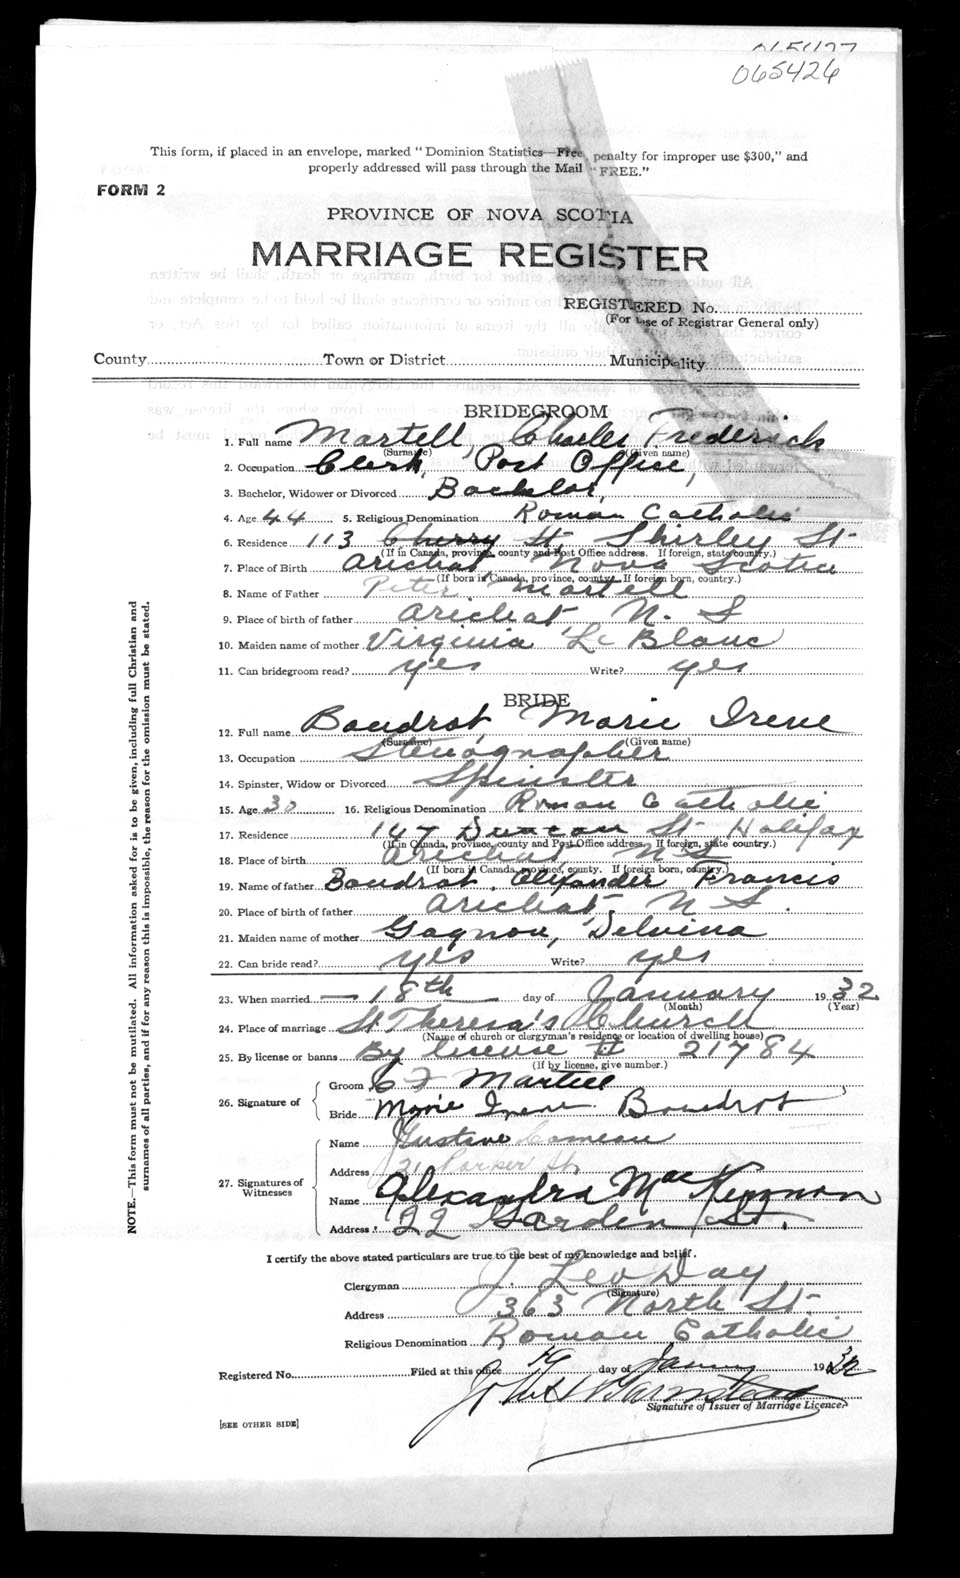 065427
065426
This form, if placed in an envelope, marked "Dominion Statistics—Free, penalty for improper use $300," and
properly addressed will pass through the Mail "FREE."
FORM 2
PROVINCE OF NOVA SCOTIA
MARRIAGE REGISTER
REGISTERED No.
(For use of Registrar General only)
County Town or District Municipality
BRIDEGROOM
1. Full name Martell, Charles Frederick
(Surname) (Given name)
2. Occupation Clerk, Post Office,
3. Bachelor, Widower or Divorced Bachelor,
4. Age 44 5. Religious Denomination Roman Catholic
6. Residence 113 Cherry St Shirley St-
(If in Canada, province, county and Post Office address. If foreign, state country.)
7. Place of Birth Arichat Nova Scotia
(If born in Canada, province, county. If foreign born, country.)
8. Name of Father Peter Martell
9. Place of birth of father Arichat N. S
10. Maiden name of mother Virginia Le Blanc
11. Can bridegroom read? yes Write? yes
BRIDE
12. Full name Boudrot, Marie Irene
(Surname) (Given name)
13. Occupation Stenographer
14. Spinster, Widow or Divorced Spinster
15. Age 30 16. Religious Denomination Roman Catholic
17. Residence 147 Duncan St Halifax
(If in Canada, province, county and Post Office address. If foreign, state country.)
18. Place of birth Arichat, N S
(If born in Canada, province, county. If foreign born, country.)
19. Name of father Boudrot, Alexander Francis
20. Place of birth of father Arichat, N S.
21. Maiden name of mother Gagnon, Delvina
22. Can bride read? yes Write? yes
23. When married 18th day of January 1932
(Month) (Year)
24. Place of marriage St Theresa's Church
(Name of church or clergyman's residence or location of dwelling house)
25. By license or banns By license # 21784
(If by license, give number.)
26. Signature of
Groom C F Martell
Bride Marie Irene Boudrot
27. Signatures of Witnesses
Name Gustave Comeau
Address 31 Parker St
Name Alexandra MacKinnon
Address 22 Garden St.
I certify the above stated particulars are true to the best of my knowledge and belief.
Clergyman J. Leo Day
(Signature)
Address 363 North St-
Religious Denomination Roman Catholic
Registered No. Filed at this office 19 day of January 1932
Signature of Issuer of Marriage Licence.
[SEE OTHER SIDE]
NOTE.—This form must not be mutilated. All information asked for is to be given, including full Christian and
surnames of all parties, and if for any reason this is impossible, the reason for the omission must be stated.